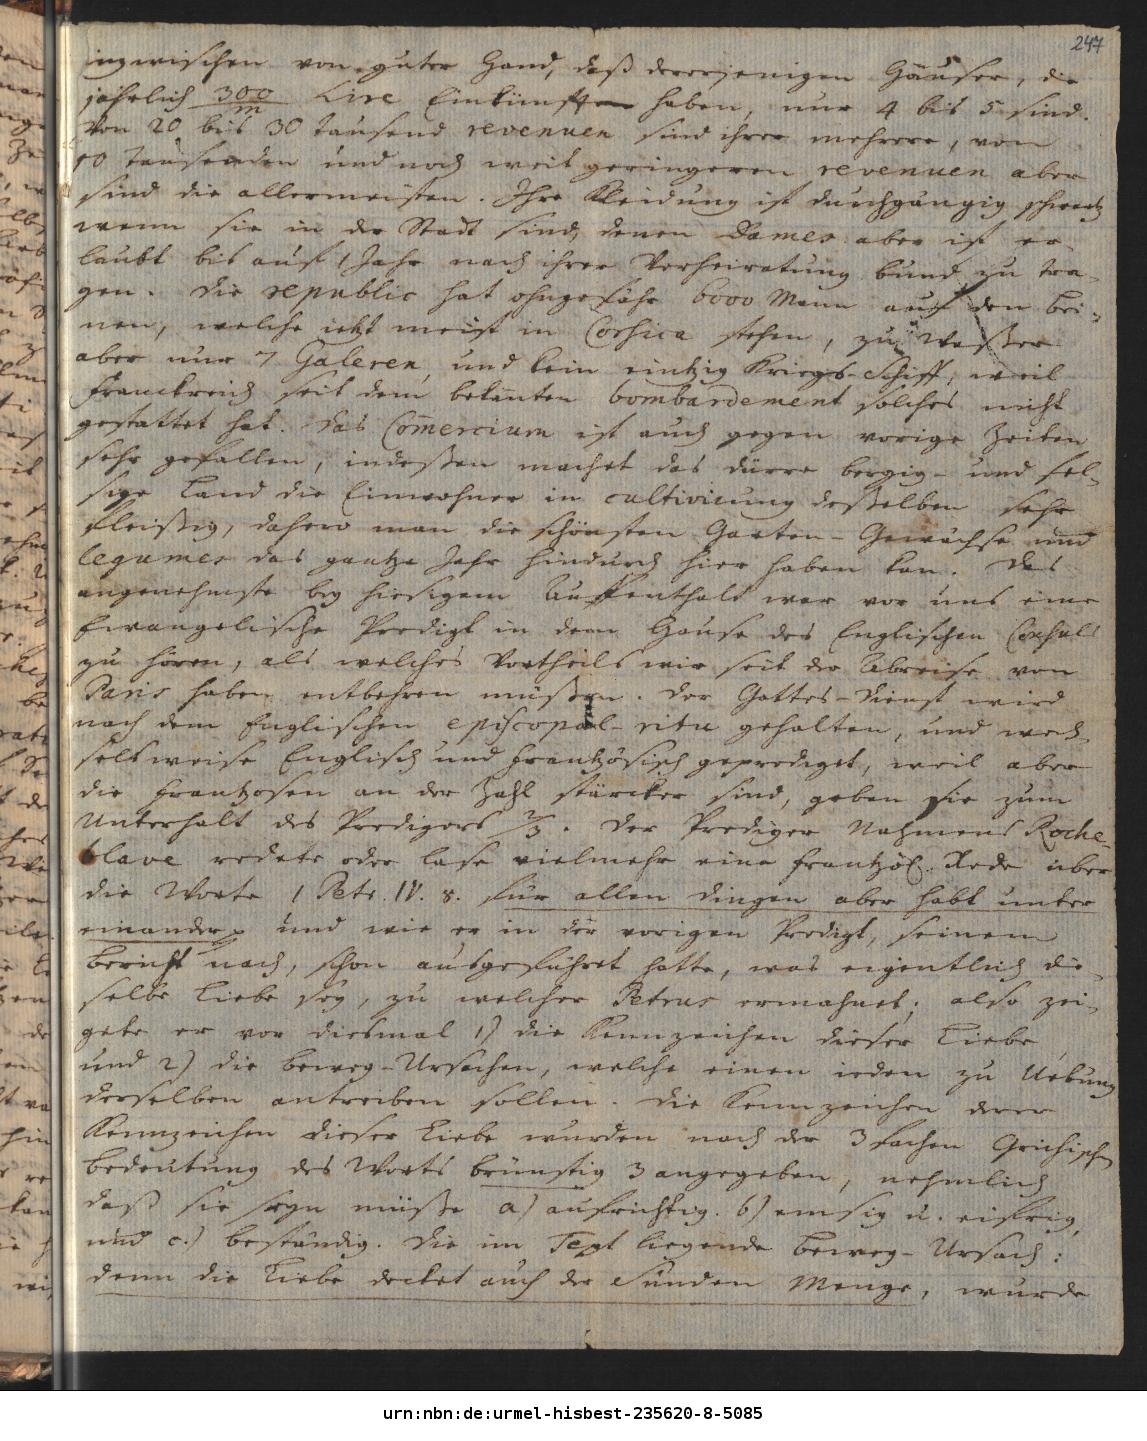 247
inzwischen von guter Hand, daß dererjenigen Häuser, die
jährlich 300/m Lire Einkünfften haben, nur 4 bis 5 sind.
Von 20 bis 30 tausend revenuen sind ihrer mehrere, von
10 tausenden und noch weit geringeren revenuen aber
sind die allermeisten. Ihre Kleidung ist durchgängig schwartz
wenn sie in der Stadt sind, denen Dames aber ist er-
laubt bis auf 1 Jahr nach ihrer Verheiratung bund zu tra-
gen. Die republic hat ohngefähr 6000 Mann auf den Bei-
nen, welche ietzt meist in Corsica stehen, zu Waßer
aber nur 7 Galeren, und kein eintzig Kriegs-Schiff, weil
Franckreich seit dem bekanten bombardement solches nicht
gestattet hat. Das Comercium ist auch gegen vorige Zeiten
sehr gefallen, indeßen machet das dürre bergig- und fel-
sige Land die Einwohner in cultivirung deßelben sehr
fleißig, dahero man die schönsten Garten-Gewächse und
legumes das gantze Jahr hindurch hier haben kan. Das
angenehmste bey hiesigem Auffenthalt war vor uns eine
Evangelische Predigt in dem Hause des Englischen Consuls
zu hören, als welches Vortheils wir seit der Abreise von
Paris haben entbehren müßen. Der Gottes-Dienst wird
nach dem Englischen episcopal-ritu gehalten, und wech-
selsweise Englisch und Frantzösisch geprediget, weil aber
die Frantzosen an der Zahl stärcker sind, geben sie zum
Unterhalt des Predigers 2/3. Der Prediger Nahmens Roche-
blave redete oder lase vielmehr eine frantzös. Rede über
die Worte 1 Petr. IV. 8. für allen dingen aber habt unter
einander und wie er in der vorigen Predigt, seinem
Bericht nach, schon ausgeführet hatte, was eigentlich die-
selbe Liebe sey, zu welcher Petrus ermahnet; also zei-
gete er vor diesmal 1) die Kennzeichen dieser Liebe,
und 2) die Beweg-Ursachen, welche einen ieden zu Uebung
derselben antreiben sollen. Die Kennzeichen derer
Kennzeichen dieser Liebe wurden nach der 3fachen Grichischen
Bedeutung des Worts brünstig 3 angegeben, nehmlich
daß sie seyn müße a) aufrichtig. b) emsig u. eifrig,
und c.) beständig. Die im Text liegende Beweg-Ursach:
denn die Liebe decket auch der Sünden Menge, wurde
urn:nbn:de:urmel-hisbest-235620-8-5085